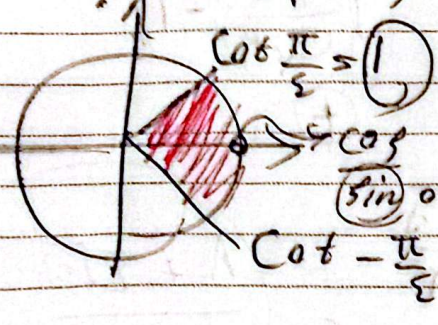 Cot π/٤ = 1
cos
sin 0
Cot - π/٤